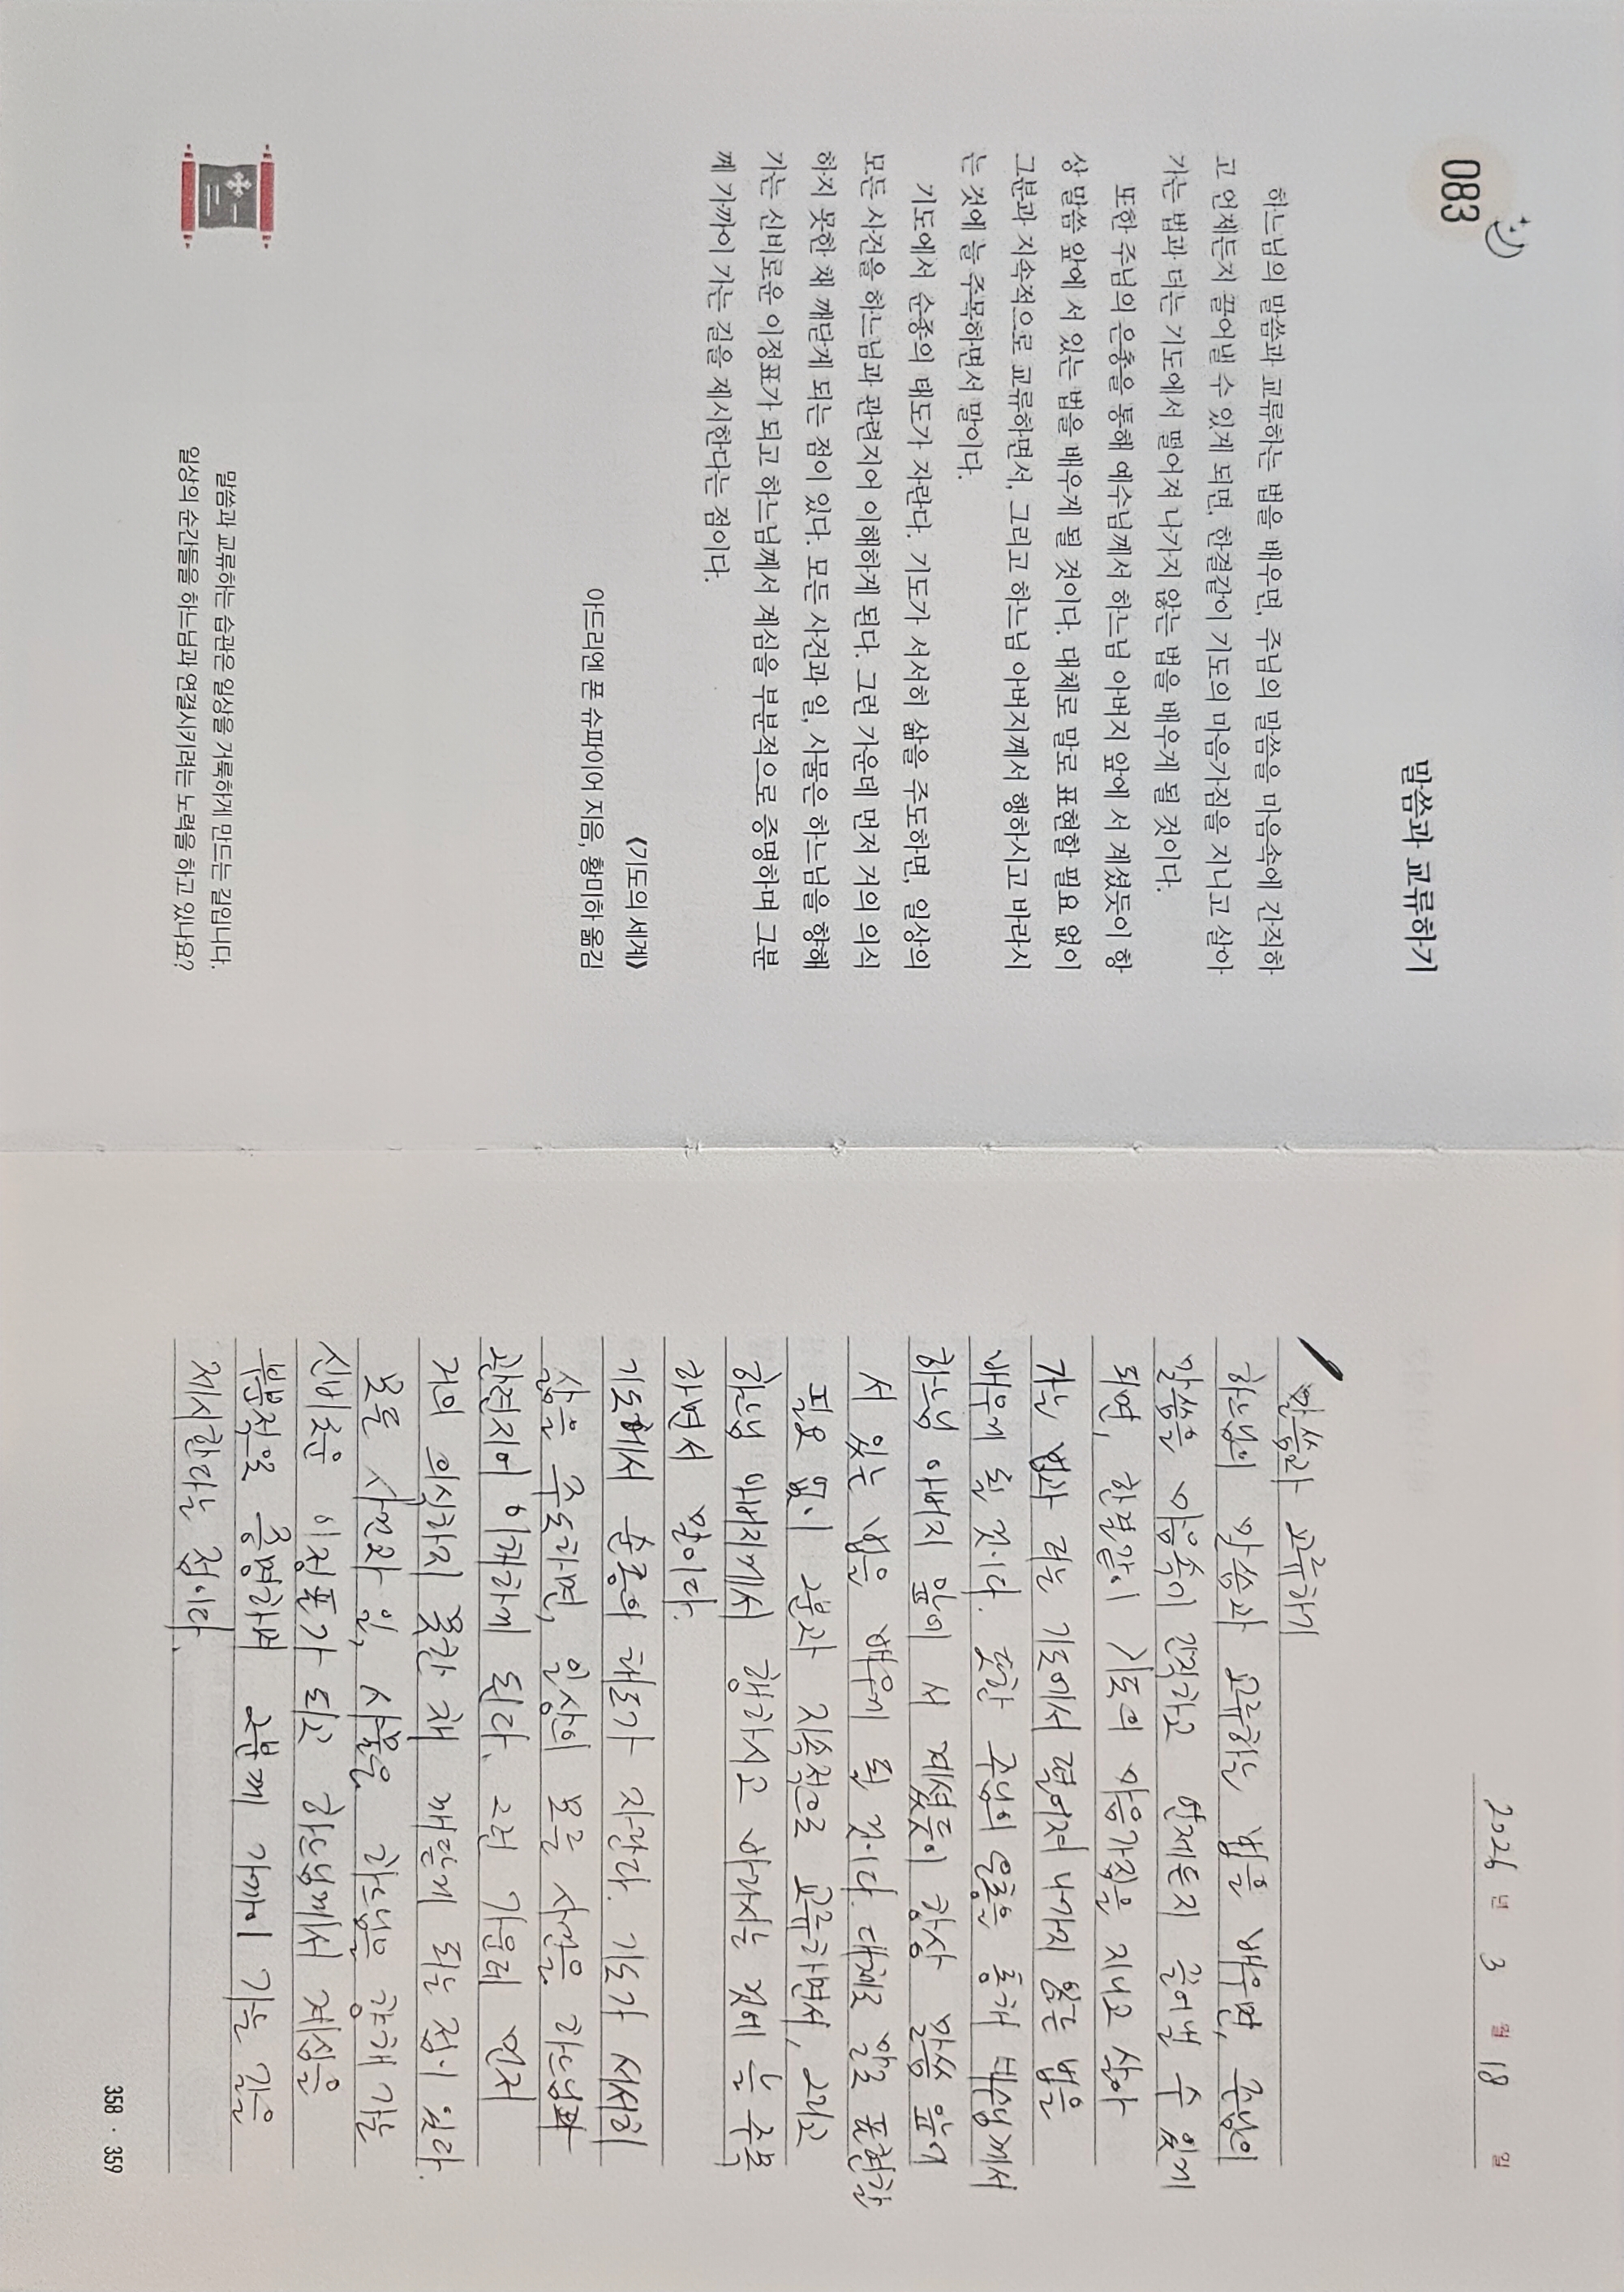 083
말씀과 교류하기
하느님의 말씀과 교류하는 법을 배우면, 주님의 말씀을 마음속에 간직하
고 언제든지 끌어낼 수 있게 되면, 한결같이 기도의 마음가짐을 지니고 살아
가는 법과 더는 기도에서 떨어져 나가지 않는 법을 배우게 될 것이다.
또한 주님의 은총을 통해 예수님께서 하느님 아버지 앞에 서 계셨듯이 항
상 말씀 앞에 서 있는 법을 배우게 될 것이다. 대체로 말로 표현할 필요 없이
그분과 지속적으로 교류하면서, 그리고 하느님 아버지께서 행하시고 바라시
는 것에 늘 주목하면서 말이다.
기도에서 순종의 태도가 자란다. 기도가 서서히 삶을 주도하면, 일상의
모든 사건을 하느님과 관련지어 이해하게 된다. 그런 가운데 먼저 거의 의식
하지 못한 채 깨닫게 되는 점이 있다. 모든 사건과 일, 사물은 하느님을 향해
가는 신비로운 이정표가 되고 하느님께서 계심을 부분적으로 증명하며 그분
께 가까이 가는 길을 제시한다는 점이다.
《기도의 세계》
아드리엔 폰 슈파이어 지음, 황미하 옮김
말씀과 교류하는 습관은 일상을 거룩하게 만드는 길입니다.
일상의 순간들을 하느님과 연결시키려는 노력을 하고 있나요?
2026 년 3 월 18 일
말씀과 교류하기
하느님의 말씀과 교류하는 법을 배우면, 주님의
말씀을 마음속에 간직하고 언제든지 끌어낼 수 있게
되면, 한결같이 기도의 마음가짐을 지니고 살아
가는 법과 더는 기도에서 떨어져 나가지 않는 법을
배우게 될 것이다. 또한 주님의 은총을 통해 예수님께서
하느님 아버지 앞에 서 계셨듯이 항상 말씀 앞에
서 있는 법을 배우게 될 것이다. 대체로 말로 표현할
필요 없이 그분과 지속적으로 교류하면서, 그리고
하느님 아버지께서 행하시고 바라시는 것에 늘 주목
하면서 말이다.
기도에서 순종의 태도가 자란다. 기도가 서서히
삶을 주도하면, 일상의 모든 사건을 하느님과
관련지어 이해하게 된다. 그런 가운데 먼저
거의 의식하지 못한 채 깨닫게 되는 점이 있다.
모든 사건과 일, 사물은 하느님을 향해 가는
신비로운 이정표가 되고 하느님께서 계심을
부분적으로 증명하며 그분께 가까이 가는 길을
제시한다는 점이다.
358 · 359